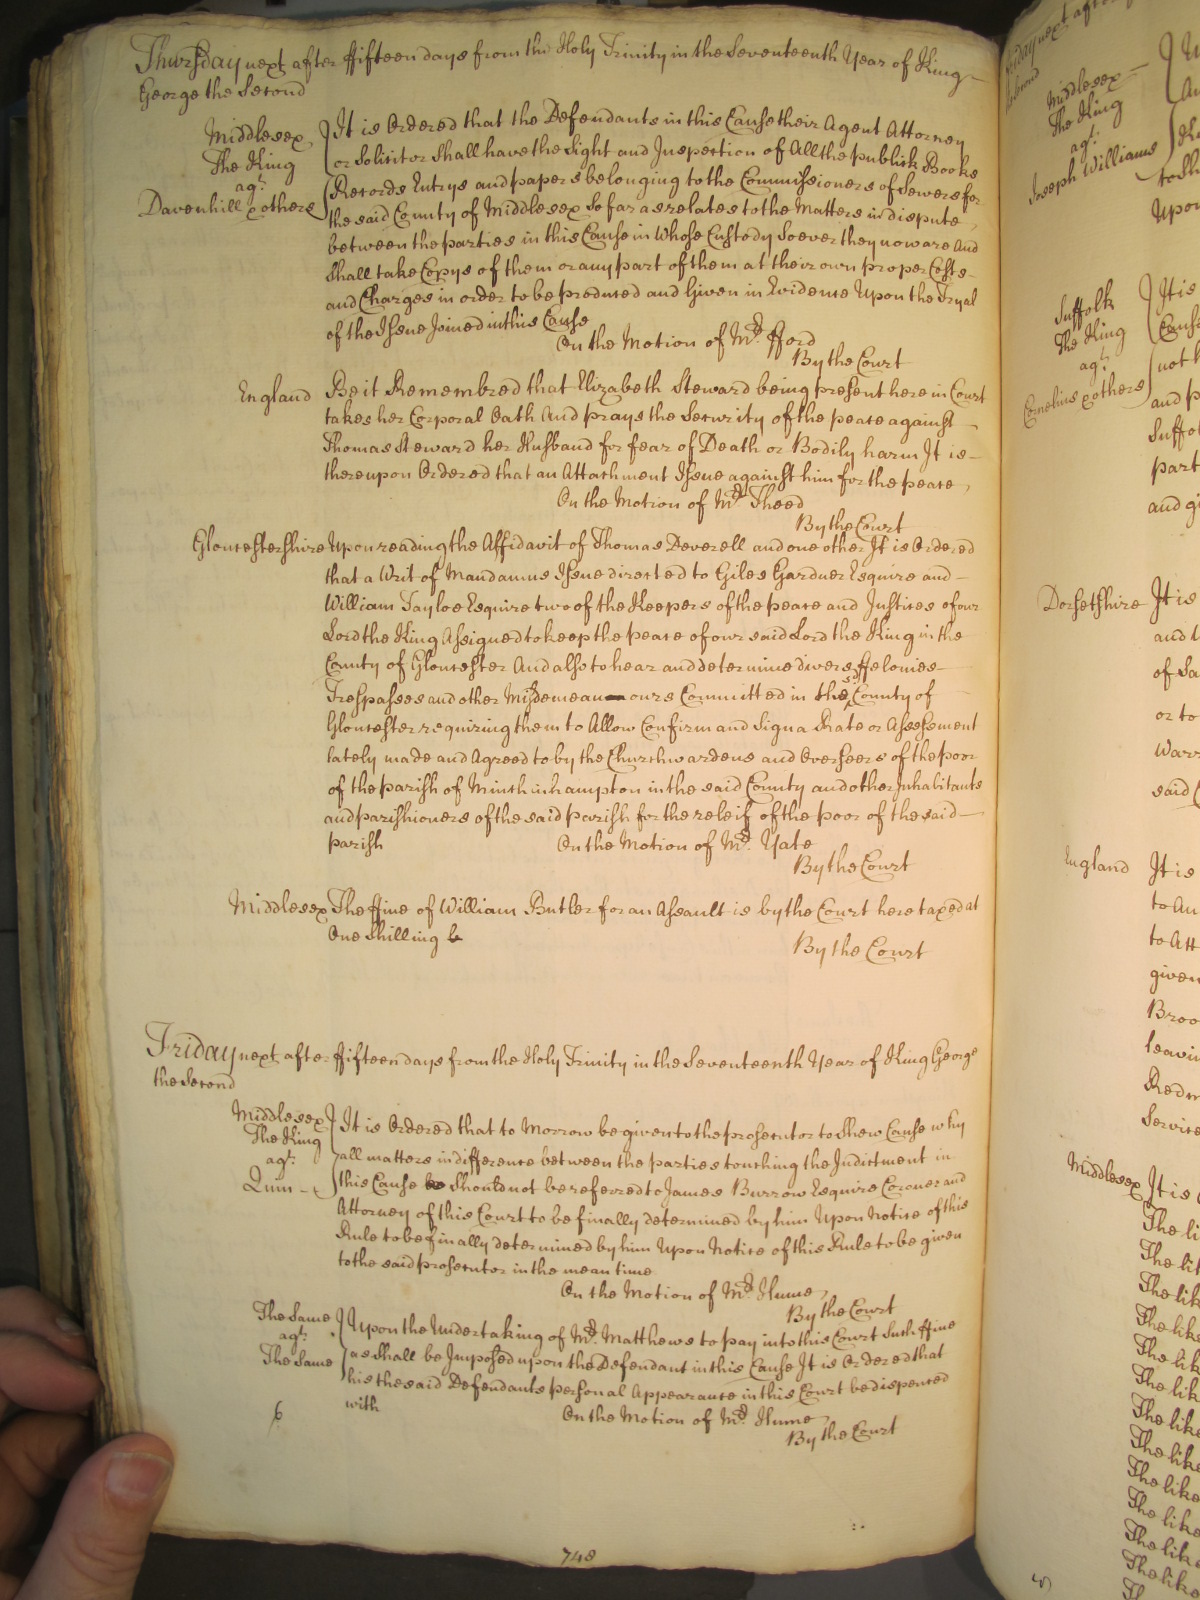 Thursday next after ffifteen days from the Holy Trinity in the Seventeenth Year of King
George the Second
Middlesex
The King
agt.
Davenhill & others
It is Ordered that the Defendants in this Cause their Agent Attorney
or Solicitor Shall have the Sight and Inspection of All the publick Books
Records Entrys and papers belonging to the Commissioners of Sewers for
the said County of Middlesex So far as relates to the Matters in dispute
between the parties in this Cause in Whose Custody Soever they now are And
Shall take Copys of them or any part of them at their own proper Costs
and Charges in order to be produced and Given in Evidence Upon the Tryal
of the Issue Joined in this Cause
On the Motion of Mr. fford
By the Court
England
Be it Remembred that Elizabeth Steward being present here in Court
takes her Corporal Oath And prays the Security of the peace against
Thomas Steward her Husband for fear of Death or Bodily harm It is
thereupon Ordered that an Attachment Issue against him for the peace
On the Motion of Mr. Theed
By the Court
Gloucestershire
Upon reading the Affidavit of Thomas Deverell and one other It is Ordered
that a Writ of Mandamus Issue directed to Giles Gardner Esquire and
William Tayloe Esquire two of the Keepers of the peace and Justices of our
Lord the King Assigned to keep the peace of our said Lord the King in the
County of Gloucester And also to hear and determine divers ffelonies
Trespasses and other Misdemeanours Committed in the sd. County of
Gloucester requiring them to Allow Confirm and Sign a Rate or Assessment
lately made and Agreed to by the Churchwardens and Overseers of the poor
of the parish of Minchinhampton in the said County and other Inhabitants
and parishioners of the said parish for the releif of the poor of the said
parish
On the Motion of Mr. Yate
By the Court
Middlesex
The ffine of William Butler for an Assault is by the Court here taxed at
One Shilling
By the Court
Friday next after ffifteen days from the Holy Trinity in the Seventeenth Year of King George
the Second
Middlesex
The King
agt.
Quin
It is Ordered that to Morrow be given to the prosecutor to Shew Cause why
all matters in difference between the parties touching the Indictment in
this Cause Should not be referred to James Burrow Esquire Coroner and
Attorney of this Court to be finally determined by him Upon Notice of this
Rule to be finally determined by him Upon Notice of this Rule to be given
to the said prosecutor in the mean time
On the Motion of Mr. Hume
By the Court
The Same
agt.
The Same
Upon the Undertaking of Mr. Matthews to pay into this Court Such ffine
as Shall be Imposed upon the Defendant in this Cause It is Ordered that
his the said Defendants personal Appearance in this Court be dispenced
with
On the Motion of Mr. Hume
By the Court
6
748
Middlesex
The King
agt.
Joseph Williams
Upon
Suffolk
The King
agt.
Cornelius & others
It is
Cause
not
and p
Suffo
part
and g
Dorsetshire
It is
and
of Sa
or to
Warr
said
England
It is
to An
to Att
given
Broo
leavi
Redm
Service
Middlesex
It is
The li
The lik
The lik
The like
The lik
The lik
The like
The like
The like
The like
The lik
The like